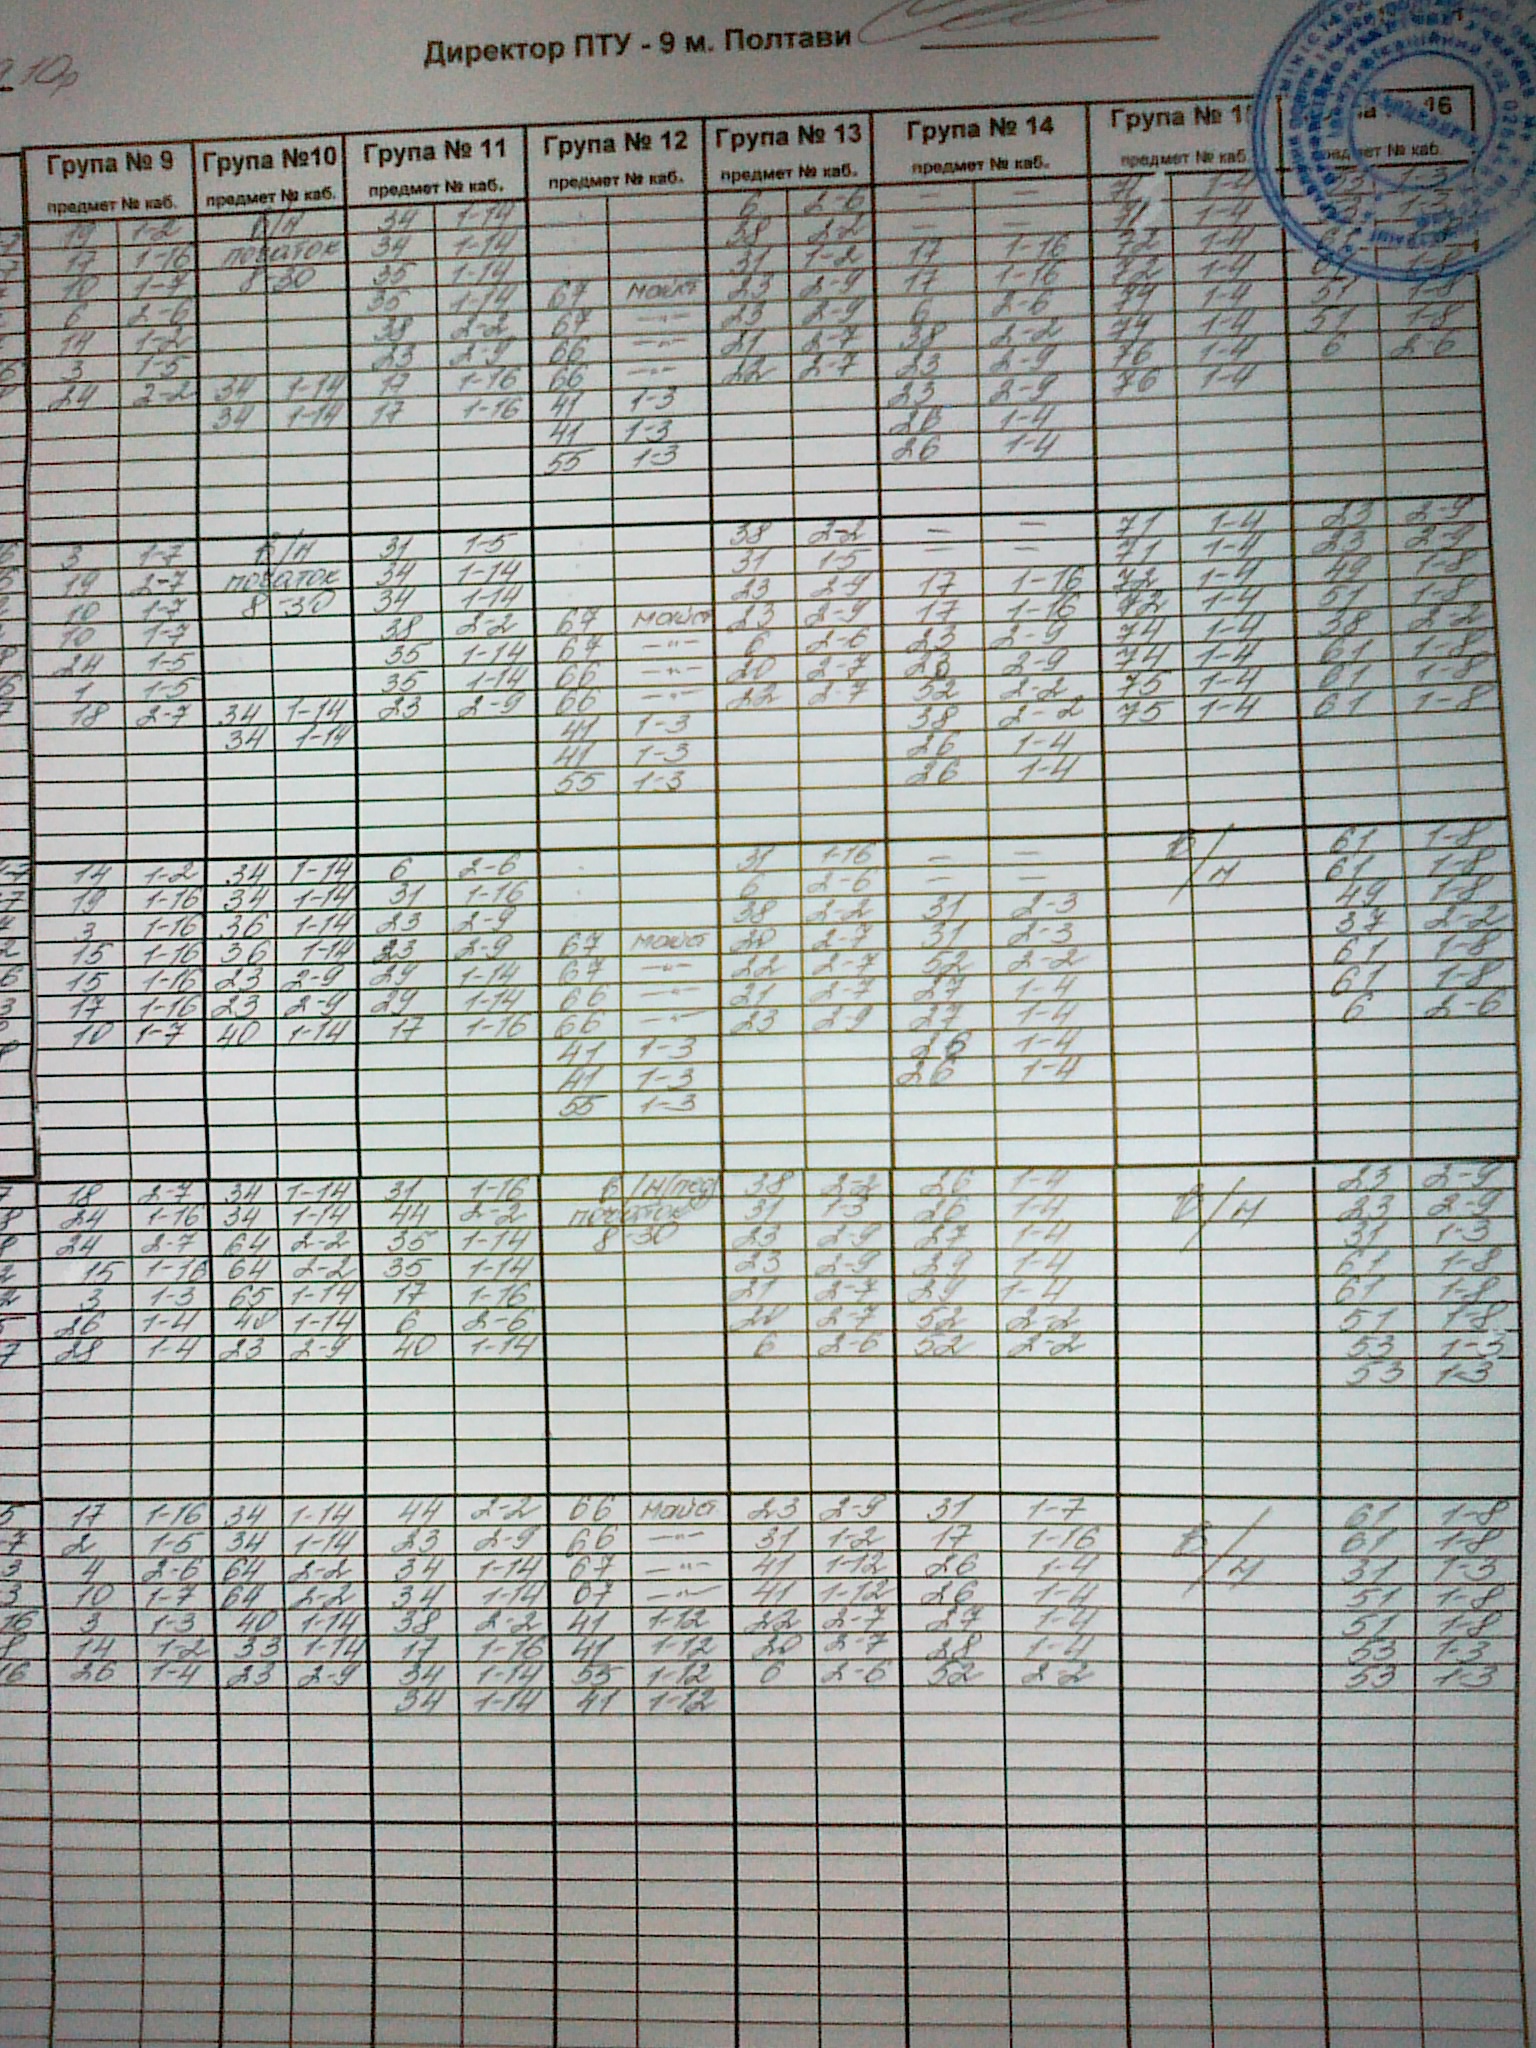 10р
Директор ПТУ - 9 м. Полтави
Група № 9 Група №10 Група № 11 Група № 12 Група № 13 Група № 14 Група № 16
предмет № каб. предмет № каб. предмет № каб. предмет № каб. предмет № каб. предмет № каб. предмет № каб. № каб.
19 1-2 В/н 34 1-14 6 2-6 — — 71 1-4 1-3
17 1-16 початок 34 1-14 38 2-2 — — 71 1-4 1-3
10 1-7 8-30 35 1-14 31 1-2 17 1-16 72 1-4
6 2-6 35 1-14 67 майст 23 2-9 17 1-16 72 1-4 61 1-8
14 1-2 38 2-2 67 —"— 23 2-9 6 2-6 74 1-4 51 1-8
3 1-5 23 2-9 66 —"— 21 2-7 38 2-2 74 1-4 51 1-8
24 2-2 34 1-14 17 1-16 66 —"— 22 2-7 23 2-9 76 1-4 6 2-6
34 1-14 17 1-16 41 1-3 23 2-9 76 1-4
41 1-3 26 1-4
55 1-3 26 1-4
3 1-7 В/н 31 1-5 38 2-2 — — 71 1-4 23 2-9
19 2-7 початок 34 1-14 31 1-5 — — 71 1-4 23 2-9
10 1-7 8-30 34 1-14 23 2-9 17 1-16 72 1-4 49 1-8
10 1-7 38 2-2 67 майст 23 2-9 17 1-16 72 1-4 51 1-8
24 1-5 35 1-14 67 —"— 6 2-6 23 2-9 74 1-4 38 2-2
1 1-5 35 1-14 66 —"— 20 2-7 23 2-9 74 1-4 61 1-8
18 2-7 34 1-14 23 2-9 66 —"— 22 2-7 52 2-2 75 1-4 61 1-8
34 1-14 41 1-3 38 2-2 75 1-4 61 1-8
41 1-3 26 1-4
55 1-3 26 1-4
14 1-2 34 1-14 6 2-6 31 1-16 — — В/н 61 1-8
19 1-16 34 1-14 31 1-16 6 2-6 — — 61 1-8
3 1-16 36 1-14 23 2-9 38 2-2 31 2-3 49 1-8
15 1-16 36 1-14 23 2-9 67 майст 20 2-7 31 2-3 37 2-2
15 1-16 23 2-9 29 1-14 67 —"— 22 2-7 52 2-2 61 1-8
17 1-16 23 2-9 29 1-14 66 —"— 21 2-7 27 1-4 61 1-8
10 1-7 40 1-14 17 1-16 66 —"— 23 2-9 27 1-4 6 2-6
41 1-3 26 1-4
41 1-3 26 1-4
55 1-3
18 2-7 34 1-14 31 1-16 В/н 38 2-2 26 1-4 В/н 23 2-9
24 1-16 34 1-14 44 2-2 початок 31 1-3 26 1-4 23 2-9
24 2-7 64 2-2 35 1-14 8-30 23 2-9 27 1-4 31 1-3
15 1-16 64 2-2 35 1-14 23 2-9 29 1-4 61 1-8
3 1-3 65 1-14 17 1-16 21 2-7 29 1-4 61 1-8
26 1-4 48 1-14 6 2-6 20 2-7 52 2-2 51 1-8
28 1-4 23 2-9 40 1-14 6 2-6 52 2-2 53 1-3
53 1-3
17 1-16 34 1-14 44 2-2 66 майст 23 2-9 31 1-7 61 1-8
2 1-5 34 1-14 23 2-9 66 —"— 31 1-2 17 1-16 В/н 61 1-8
4 2-6 64 2-2 34 1-14 67 —"— 41 1-12 26 1-4 31 1-3
10 1-7 64 2-2 34 1-14 67 —"— 41 1-12 26 1-4 51 1-8
3 1-3 40 1-14 38 2-2 41 1-12 22 2-7 27 1-4 51 1-8
14 1-2 33 1-14 17 1-16 41 1-12 20 2-7 28 1-4 53 1-3
26 1-4 23 2-9 34 1-14 55 1-12 6 2-6 52 2-2 53 1-3
34 1-14 41 1-12